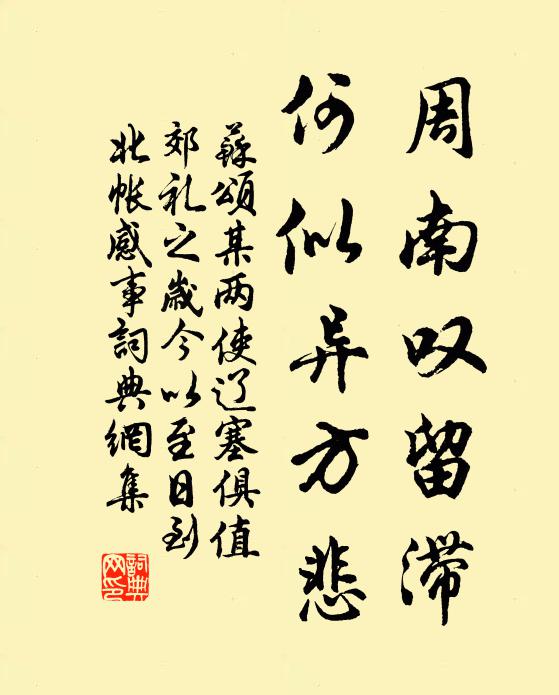 周南叹留滞
何似异方悲
蘇頌某两使辽塞俱值
郊礼之歲今以至日到
北帐感事詞典網集
詞典
网印